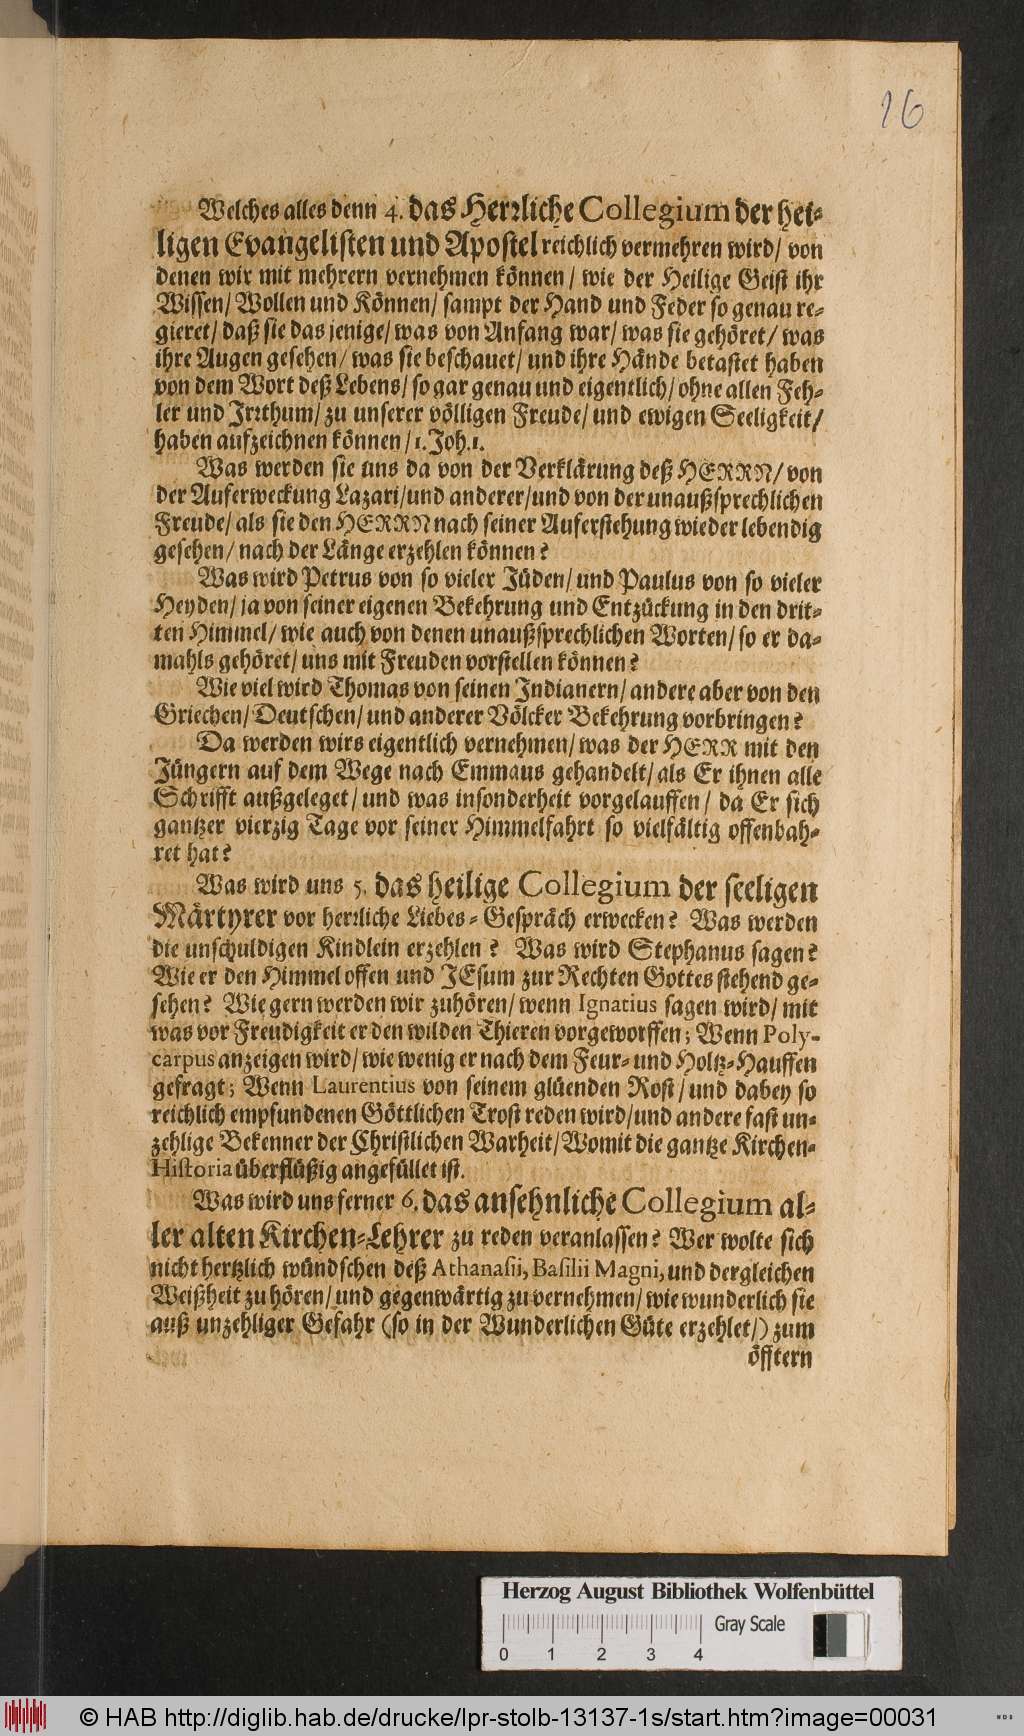 16
Welches alles denn 4. das Herꝛliche Collegium der hei-
ligen Evangelisten und Apostel reichlich vermehren wird/ von
denen wir mit mehrern vernehmen können/ wie der Heilige Geist ihr
Wissen/ Wollen und Können/ sampt der Hand und Feder so genau re-
gieret/ daß sie das jenige/ was von Anfang war/ was sie gehöret/ was
ihre Augen gesehen/ was sie beschauet/ und ihre Hände betastet haben
von dem Wort deß Lebens/ so gar genau und eigentlich/ ohne allen Feh-
ler und Irꝛthum/ zu unserer völligen Freude/ und ewigen Seeligkeit/
haben aufzeichnen können/ 1. Joh. 1.
Was werden sie uns da von der Verklärung deß HERRN/ von
der Auferweckung Lazari/ und anderer/ und von der unaußsprechlichen
Freude/ als sie den HERRN nach seiner Auferstehung wieder lebendig
gesehen/ nach der Länge erzehlen können?
Was wird Petrus von so vieler Jüden/ und Paulus von so vieler
Heyden/ ja von seiner eigenen Bekehrung und Entzückung in den drit-
ten Himmel/ wie auch von denen unaußsprechlichen Worten/ so er da-
mahls gehöret/ uns mit Freuden vorstellen können?
Wie viel wird Thomas von seinen Indianern/ andere aber von den
Griechen/ Deutschen/ und anderer Völcker Bekehrung vorbringen?
Da werden wirs eigentlich vernehmen/ was der HERR mit den
Jüngern auf dem Wege nach Emmaus gehandelt/ als Er ihnen alle
Schrifft außgeleget/ und was insonderheit vorgelauffen/ da Er sich
gantzer vierzig Tage vor seiner Himmelfahrt so vielfältig offenbah-
ret hat?
Was wird uns 5. das heilige Collegium der seeligen
Märtyrer vor herꝛliche Liebes-Gespräch erwecken? Was werden
die unschuldigen Kindlein erzehlen? Was wird Stephanus sagen?
Wie er den Himmel offen und JEsum zur Rechten Gottes stehend ge-
sehen? Wie gern werden wir zuhören/ wenn Ignatius sagen wird/ mit
was vor Freudigkeit er den wilden Thieren vorgeworffen; Wenn Poly-
carpus anzeigen wird/ wie wenig er nach dem Feur- und Holtz-Hauffen
gefragt; Wenn Laurentius von seinem glüenden Rost/ und dabey so
reichlich empfundenen Göttlichen Trost reden wird/ und andere fast un-
zehlige Bekenner der Christlichen Warheit/ Womit die gantze Kirchen-
Historia überflüßig angefüllet ist.
Was wird uns ferner 6. das ansehnliche Collegium al-
ler alten Kirchen-Lehrer zu reden veranlassen? Wer wolte sich
nicht hertzlich wündschen deß Athanasii, Basilii Magni, und dergleichen
Weißheit zu hören/ und gegenwärtig zu vernehmen/ wie wunderlich sie
auß unzehliger Gefahr (so in der Wunderlichen Güte erzehlet/) zum
öfftern
Herzog August Bibliothek Wolfenbüttel
Gray Scale
0 1 2 3 4
© HAB http://diglib.hab.de/drucke/lpr-stolb-13137-1s/start.htm?image=00031